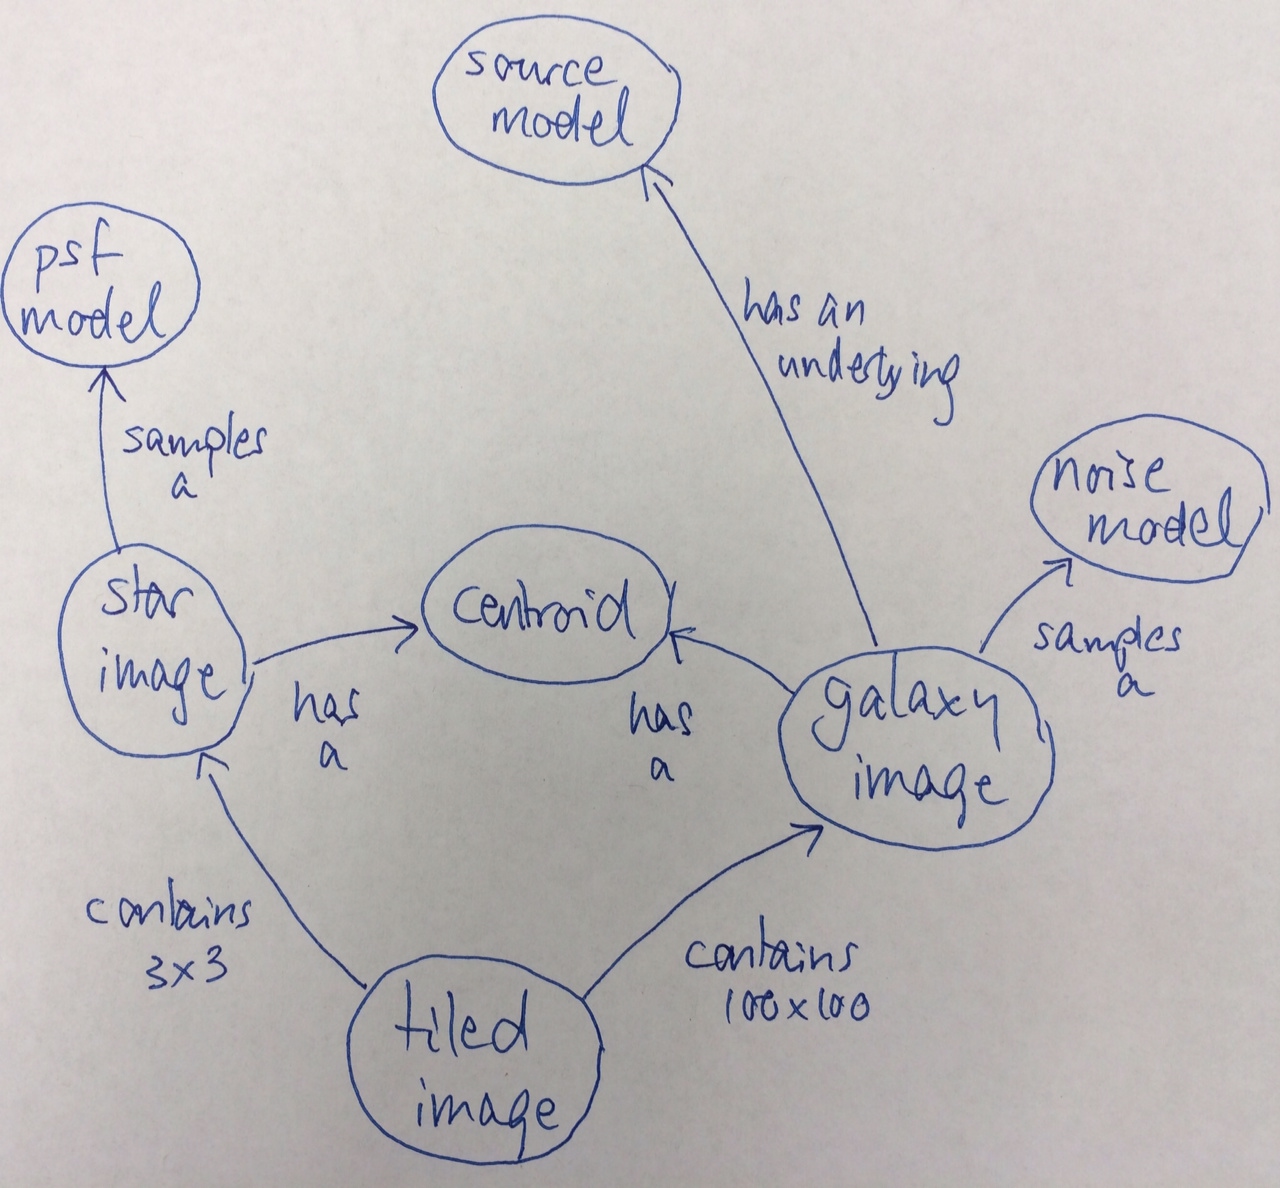 source
model
psf
model
has an
underlying
samples
a
noise
model
star
image
centroid
samples
a
has
a
has
a
galaxy
image
contains
3×3
contains
100×100
tiled
image